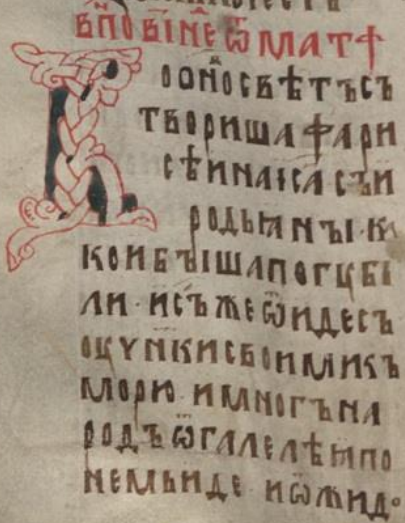 В҃ПО В҃ІНЕ Ѿ МАТФ
В ОО НО СВѢТЪ СЪ
ТВОРИША ФАРИ
СѢИ НА ІСА СЪ И
РОДЬꙖНЫ· КА
КО И БЫША ПОГꙊБІ
ЛИ· ИСЪ ЖЕ ѾИДЕ СЪ
ОꙊЧНКИ СВОИМИ КЪ
МОРЮ· И МНОГЪ НА
РОДЪ Ѿ ГАЛЕЛѢѨ ПО
НЕМЬ ИДЕ И Ѿ ЖИДО